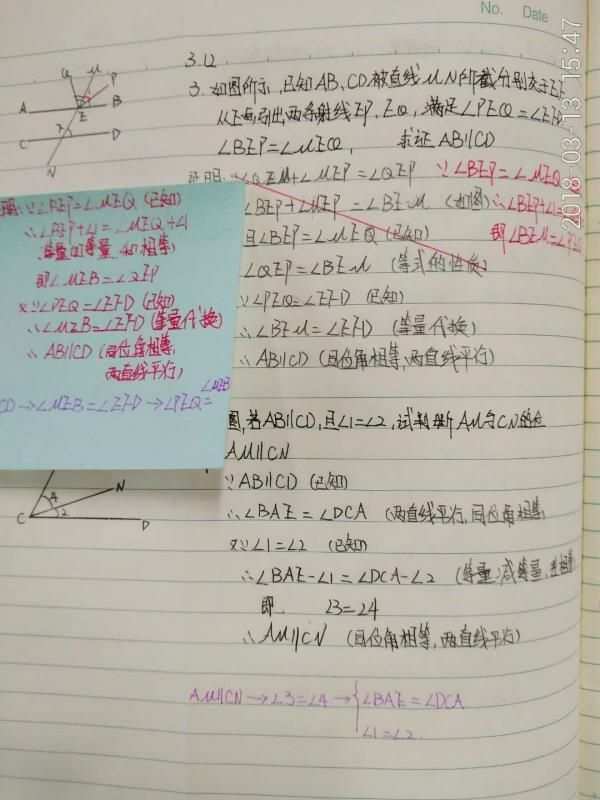 No. Date
3.12
3. 如图所示,已知AB、CD被直线MN所截分别交于E、F
从E点引出两条射线EP、EQ,满足∠PEQ=∠EFD
∠BEP=∠MEQ, 求证AB∥CD
证明:∵∠QEM+∠MEP=∠QEP ∵∠BEP=∠MEQ
∠BEP+∠MEP=∠BEM (如图) ∴∠BEP+∠1=
且∠BEP=∠MEQ(已知) 即∠BEM=
∠QEP=∠BEM (等式的性质)
∵∠PEQ=∠EFD (已知)
∴∠BEM=∠EFD (等量代换)
∴AB∥CD (同位角相等,两直线平行)
∵∠BEP=∠MEQ (已知)
∴∠BEP+∠1=∠MEQ+∠1
等量加等量,和相等
即∠MEB=∠QEP
又∵∠PEQ=∠EFD (已知)
∴∠MEB=∠EFD (等量代换)
∴AB∥CD (同位角相等,
两直线平行)
CD→∠MEB=∠EFD→∠PEQ=∠MEB
图,若AB∥CD,且∠1=∠2,试判断AM与CN的
AM∥CN
∵AB∥CD (已知)
∴∠BAE=∠DCA (两直线平行,同位角相等
又∵∠1=∠2 (已知)
∴∠BAE-∠1=∠DCA-∠2 (等量减等量,差相等
即 ∠3=∠4
∴AM∥CN (同位角相等,两直线平行)
AM∥CN→∠3=∠4→{∠BAE=∠DCA
∠1=∠2
Q M P
A B
E
C 2 D
N
4 N
C 2 D
2018-03-13 15:47